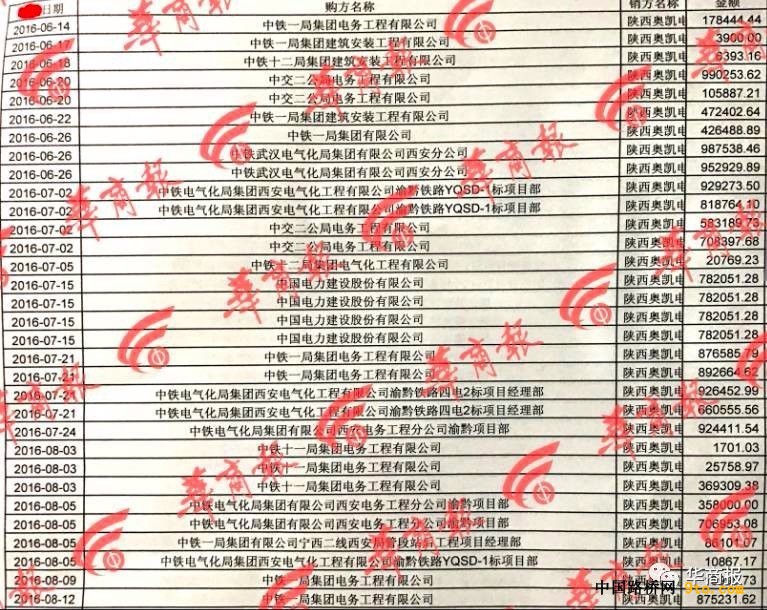 日期 购方名称 销方名称 金额
2016-06-14 中铁一局集团电务工程有限公司 陕西奥凯电 178444.44
2016-06-17 中铁一局集团建筑安装工程有限公司 陕西奥凯电 3900.00
2016-06-18 中铁十二局集团建筑安装工程有限公司 陕西奥凯电 6393.16
2016-06-20 中交二公局电务工程有限公司 陕西奥凯电 990253.62
2016-06-20 中交二公局电务工程有限公司 陕西奥凯电 105887.21
2016-06-22 中铁一局集团建筑安装工程有限公司 陕西奥凯电 472402.64
2016-06-26 中铁一局集团有限公司 陕西奥凯电 426488.89
2016-06-26 中铁武汉电气化局集团有限公司西安分公司 陕西奥凯电 987538.46
2016-06-26 中铁武汉电气化局集团有限公司西安分公司 陕西奥凯电 952929.89
2016-07-02 中铁电气化局集团西安电气化工程有限公司渝黔铁路YQSD-1标项目部 陕西奥凯电 929273.50
2016-07-02 中铁电气化局集团西安电气化工程有限公司渝黔铁路YQSD-1标项目部 陕西奥凯电 818764.10
2016-07-02 中交二公局电务工程有限公司 陕西奥凯电 583189.73
2016-07-02 中交二公局电务工程有限公司 陕西奥凯电 708397.68
2016-07-05 中铁十二局集团电气化工程有限公司 陕西奥凯电 20769.23
2016-07-15 中国电力建设股份有限公司 陕西奥凯电 782051.28
2016-07-15 中国电力建设股份有限公司 陕西奥凯电 782051.28
2016-07-15 中国电力建设股份有限公司 陕西奥凯电 782051.28
2016-07-15 中国电力建设股份有限公司 陕西奥凯电 782051.28
2016-07-21 中铁一局集团电务工程有限公司 陕西奥凯电 876585.79
2016-07-21 中铁一局集团电务工程有限公司 陕西奥凯电 892664.62
2016-07-21 中铁电气化局集团西安电气化工程有限公司渝黔铁路四电2标项目经理部 陕西奥凯电 926452.99
2016-07-21 中铁电气化局集团西安电气化工程有限公司渝黔铁路四电2标项目经理部 陕西奥凯电 660555.56
2016-07-24 中铁电气化局集团有限公司西安电务工程分公司渝黔项目部 陕西奥凯电 924411.54
2016-08-03 中铁十一局集团电务工程有限公司 陕西奥凯电 1701.03
2016-08-03 中铁一局集团电务工程有限公司 陕西奥凯电 25758.97
2016-08-03 中铁一局集团电务工程有限公司 陕西奥凯电 369309.38
2016-08-05 中铁电气化局集团有限公司西安电务工程分公司渝黔项目部 陕西奥凯电 358000.00
2016-08-05 中铁电气化局集团有限公司西安电务工程分公司渝黔项目部 陕西奥凯电 706953.08
2016-08-05 中铁一局集团有限公司宁西二线西安局管段站后工程项目经理部 陕西奥凯电 86101.07
2016-08-05 中铁电气化局集团西安电气化工程有限公司渝黔铁路YQSD-1标项目部 陕西奥凯电 10867.17
2016-08-09 中铁一局集团电务工程有限公司
2016-08-12 中铁一局集团电务工程有限公司 陕西奥凯电 875231.62
華商報
華商報
華商報
華商報
華商報
華商報
华商报
中国路桥网